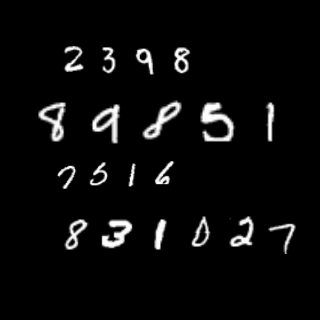 2398
89851
7516
831027